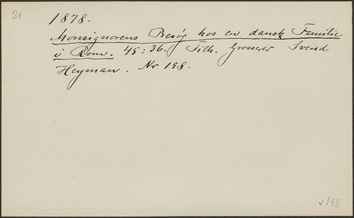 21
1878.
Monsignorens Besøg hos en dansk Familie
i Rom. 45:36. Tilh. Grosserer Svend
Heyman. No 188.